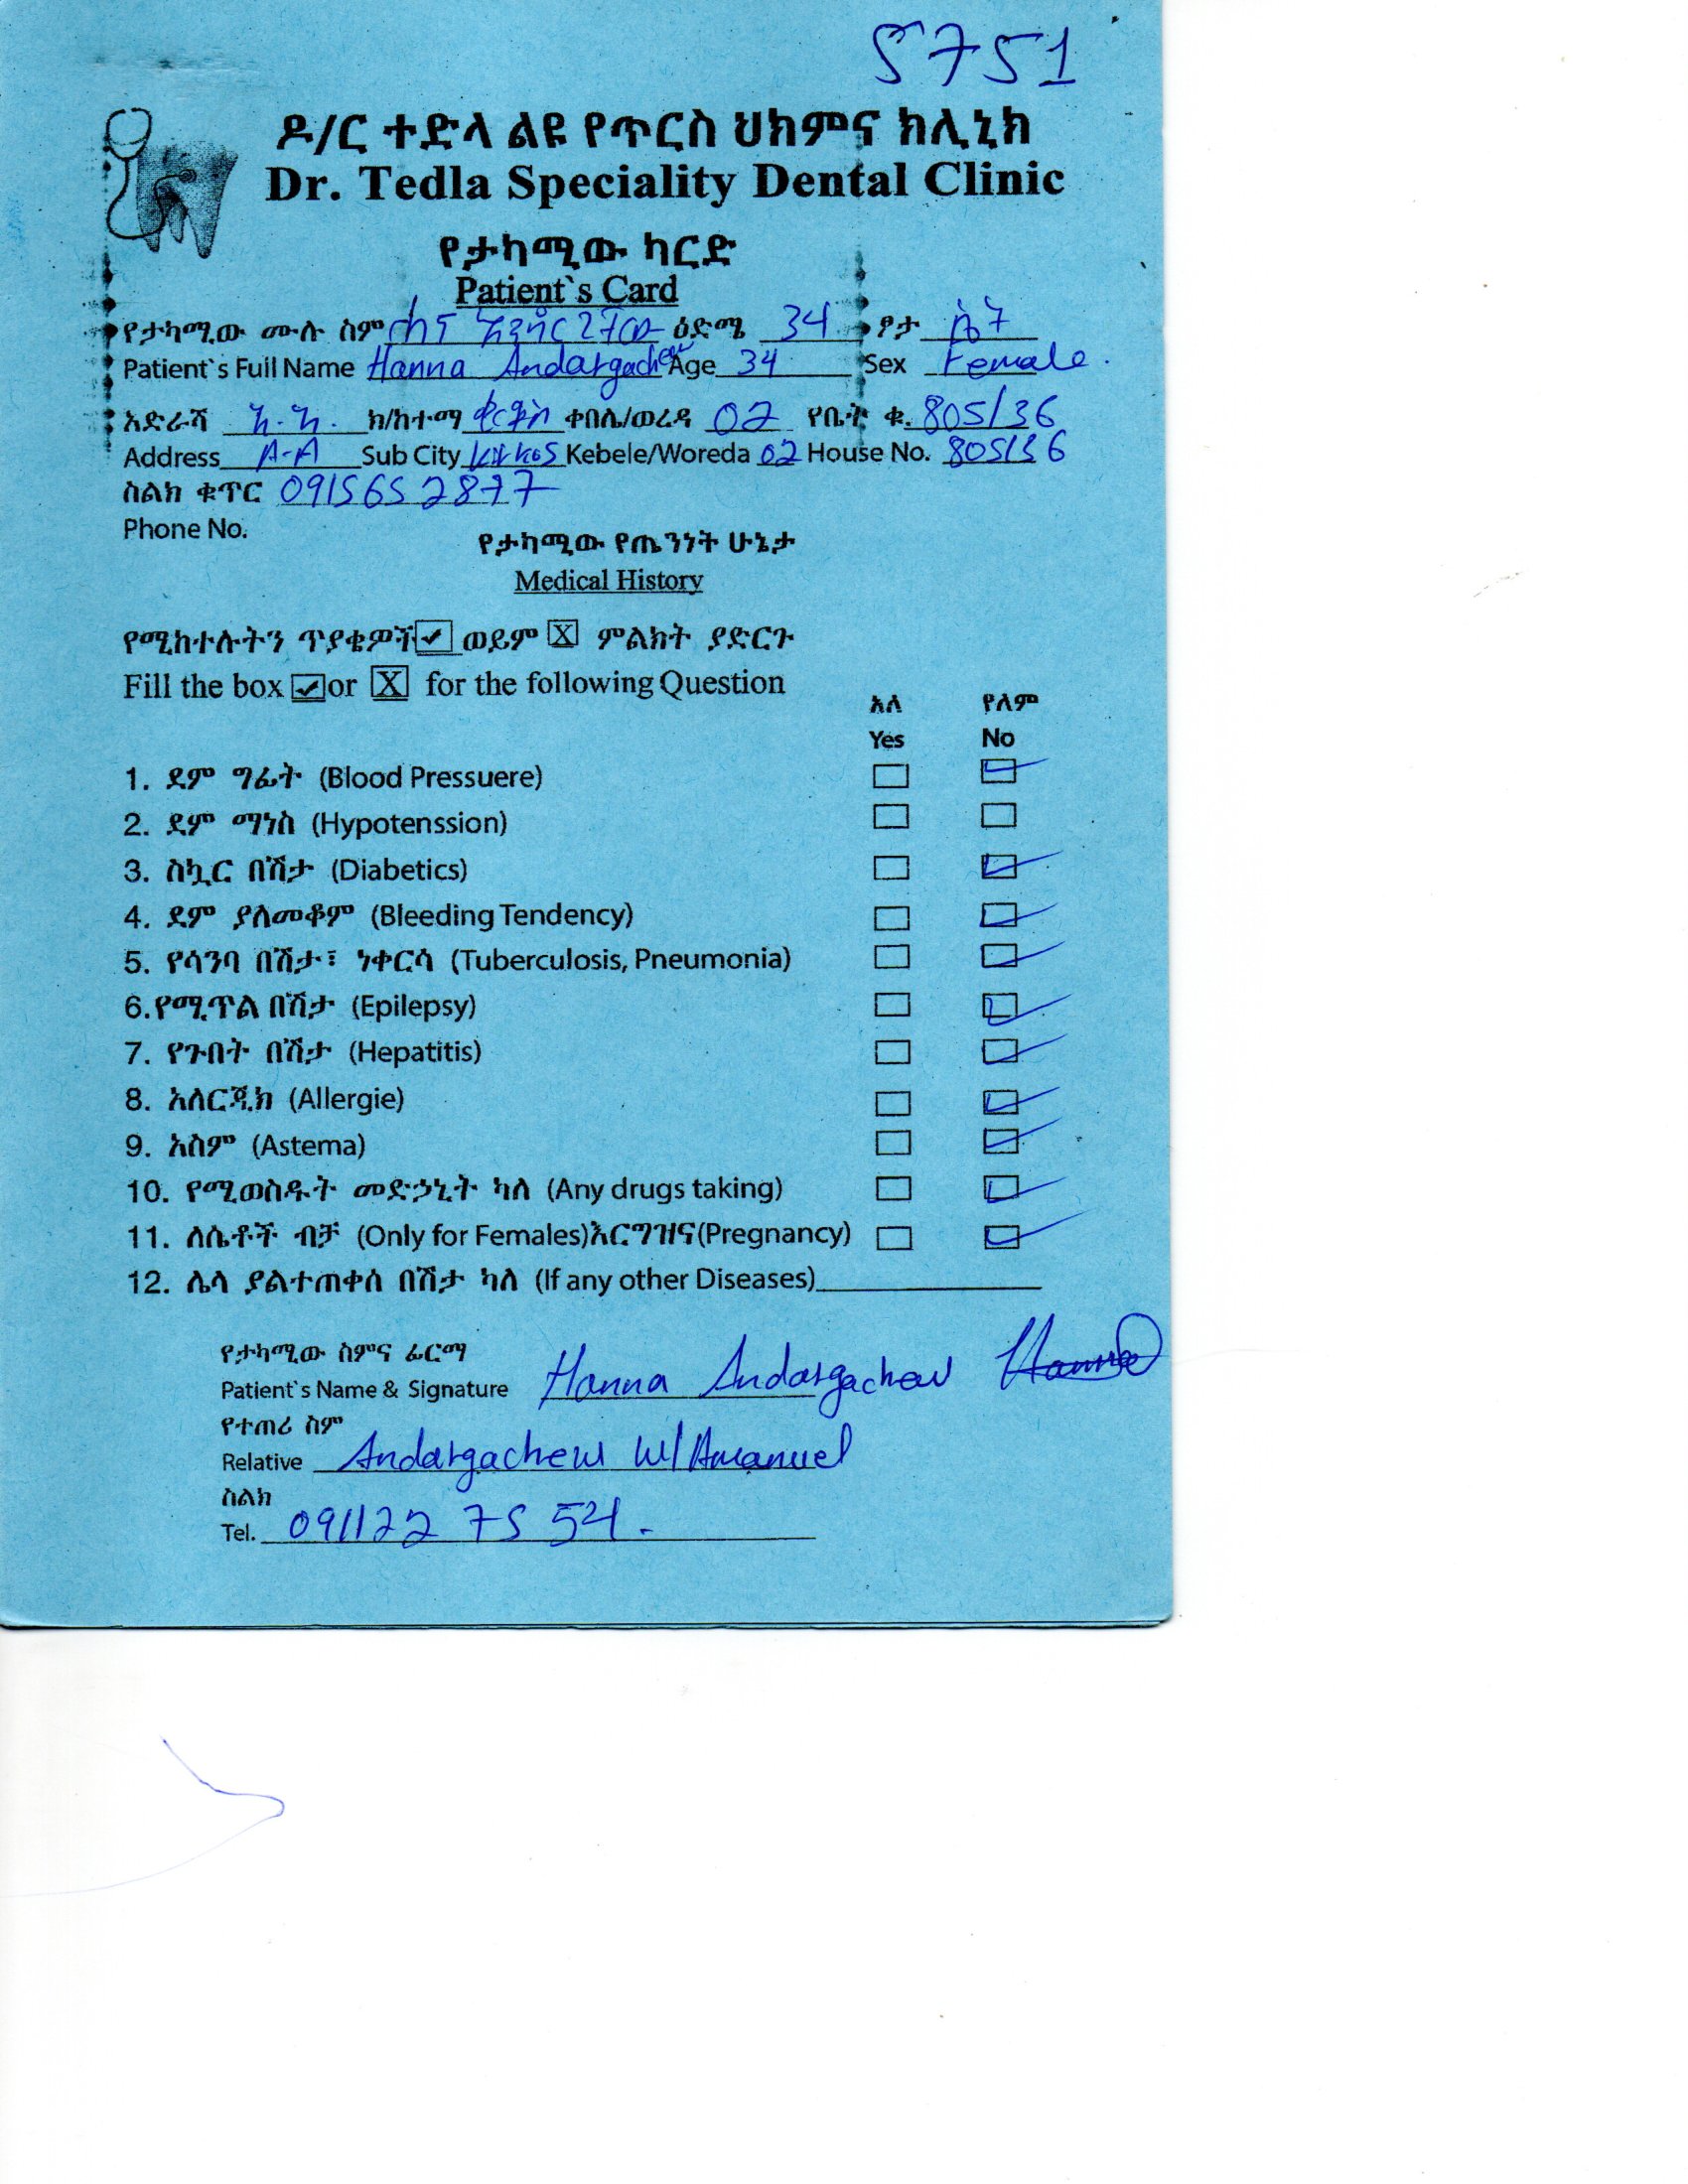 5751
ዶ/ር ተድላ ልዩ የጥርስ ህክምና ክሊኒክ
Dr. Tedla Speciality Dental Clinic
የታካሚው ካርድ
Patient`s Card
የታካሚው ሙሉ ስም ሐና አንዳርጋቸው ዕድሜ 34 ፆታ ሴት
Patient`s Full Name Hanna Andargachew Age 34 Sex Female.
አድራሻ አ.አ. ክ/ከተማ ቂርቆስ ቀበሌ/ወረዳ 02 የቤት ቁ. 805/36
Address A-A Sub City kirkos Kebele/Woreda 02 House No. 805/36
ስልክ ቁጥር 0915652877
Phone No.
የታካሚው የጤንነት ሁኔታ
Medical History
የሚከተሉትን ጥያቄዎች ✓ ወይም X ምልክት ያድርጉ
Fill the box ✓ or X for the following Question
አለ የለም
Yes No
1. ደም ግፊት (Blood Pressuere) ☐ ✓
2. ደም ማነስ (Hypotenssion) ☐ ☐
3. ስኳር በሽታ (Diabetics) ☐ ✓
4. ደም ያለመቆም (Bleeding Tendency) ☐ ✓
5. የሳንባ በሽታ፣ ነቀርሳ (Tuberculosis, Pneumonia) ☐ ✓
6.የሚጥል በሽታ (Epilepsy) ☐ ✓
7. የጉበት በሽታ (Hepatitis) ☐ ✓
8. አለርጂክ (Allergie) ☐ ✓
9. አስም (Astema) ☐ ✓
10. የሚወስዱት መድኃኒት ካለ (Any drugs taking) ☐ ✓
11. ለሴቶች ብቻ (Only for Females)እርግዝና(Pregnancy) ☐ ✓
12. ሌላ ያልተጠቀሰ በሽታ ካለ (If any other Diseases)
የታካሚው ስምና ፊርማ
Patient`s Name & Signature Hanna Andargachew Hanna
የተጠሪ ስም
Relative Andargachew W/Amanuel
ስልክ
Tel. 091122 75 54.